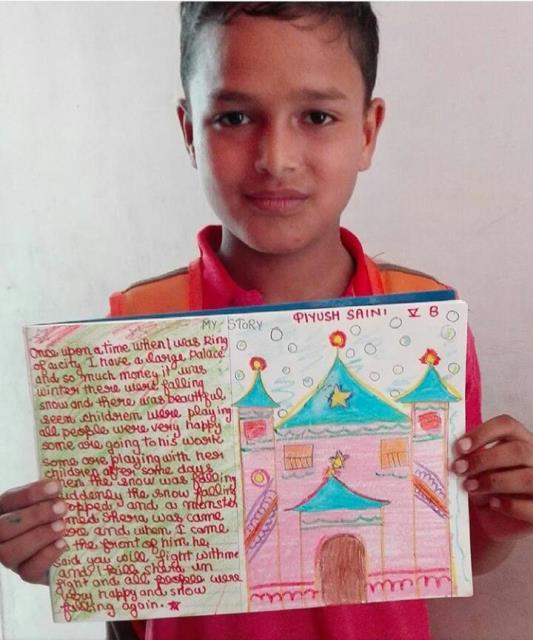 MY STORY
PIYUSH SAINI V B
Once upon a time when I was King
of a city I have a large Palace
and so much money it was
winter there were falling
snow and there was beautiful
seen children were playing
all people were very happy
some are going to his work
some are playing with her
children after some days
when the snow was falling
suddenly the snow falling
stopped and a monster
named Shera was came
and when I came
the front of him he
said you will fight with me
and I kill shera in
fight and all people were
very happy and snow
falling again.